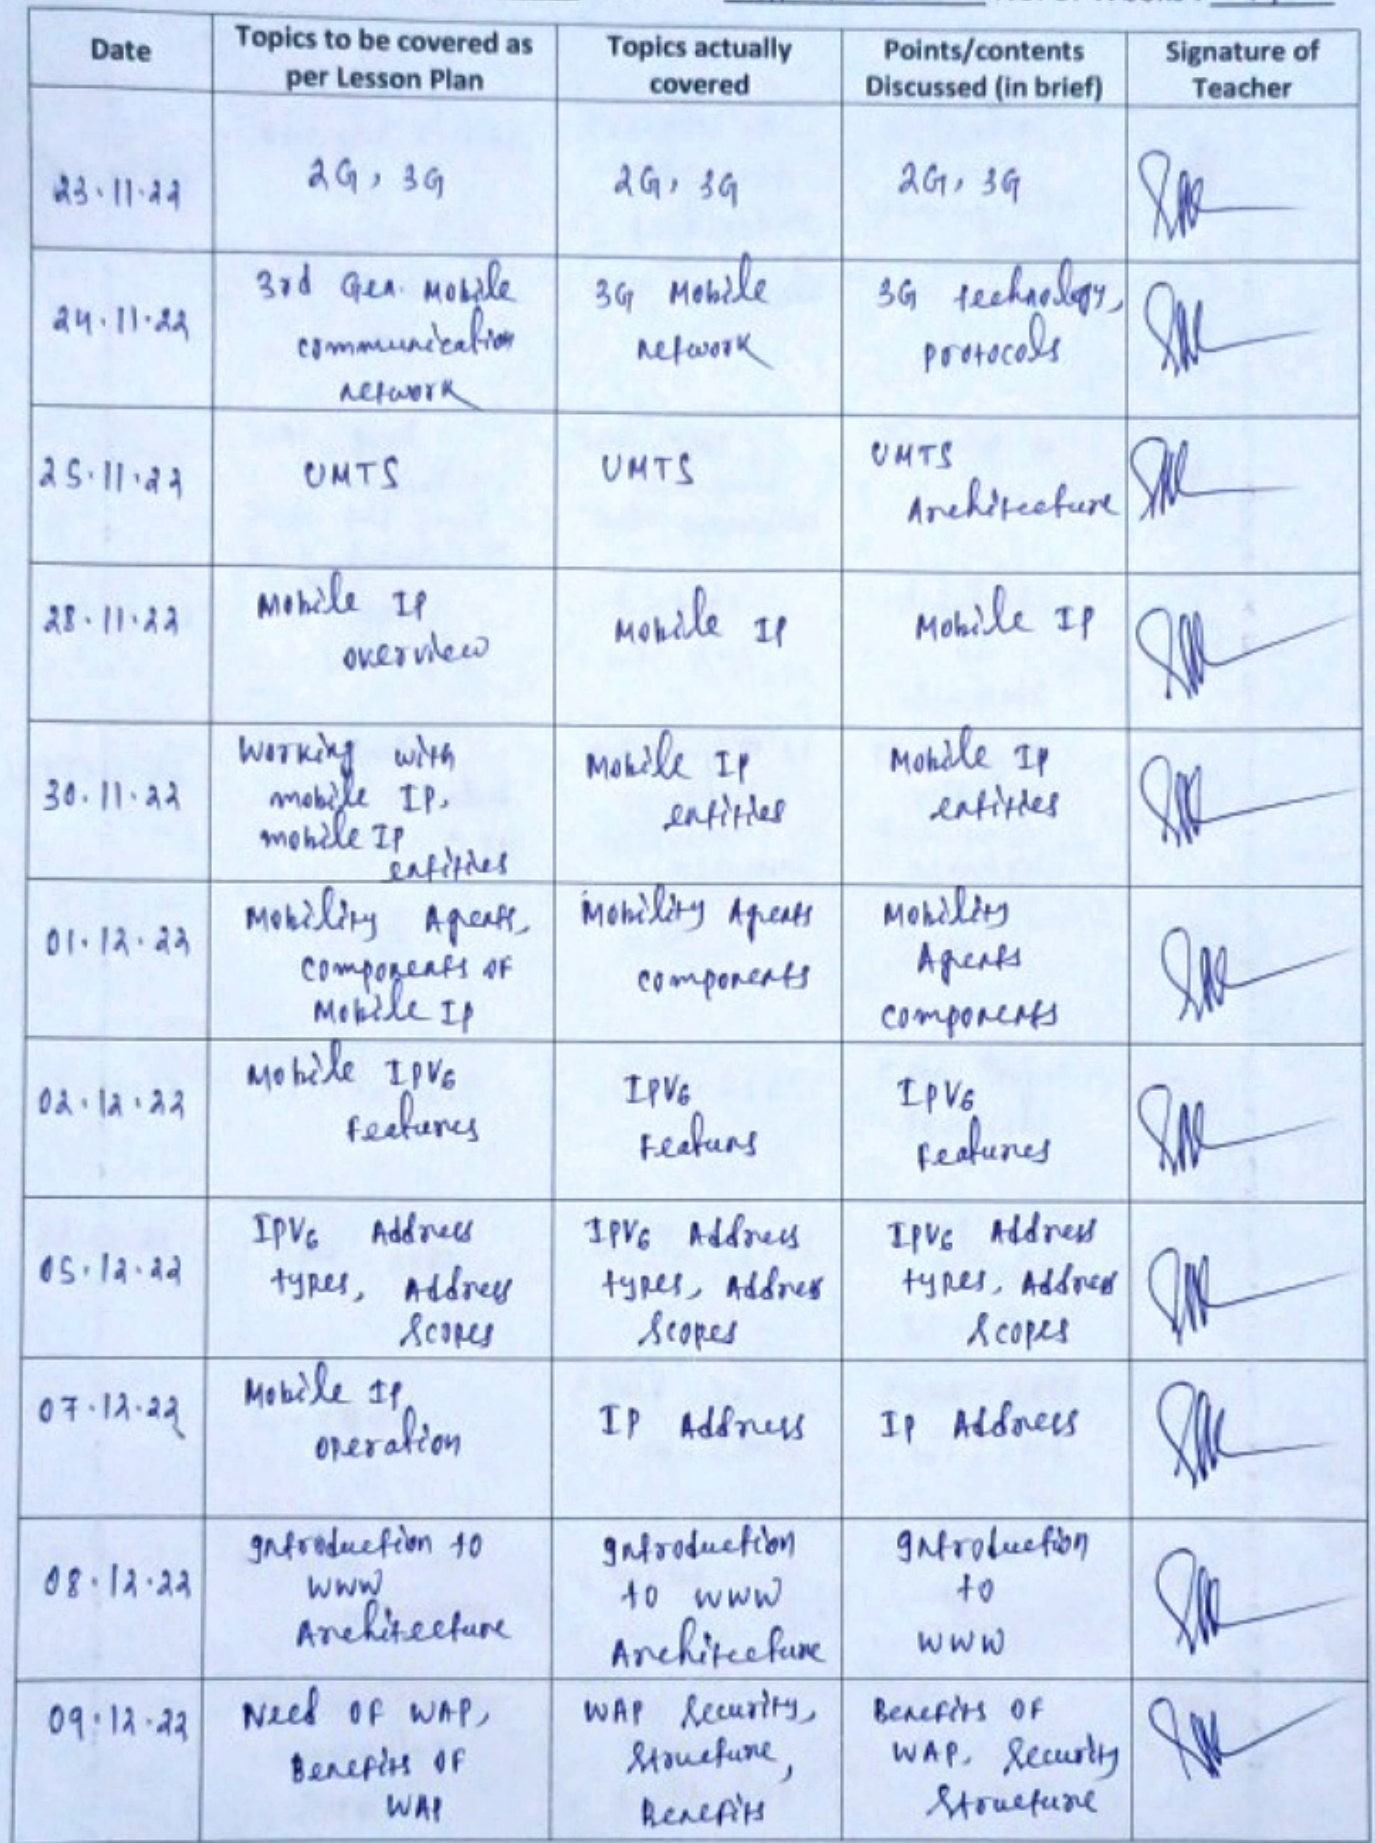 Date
Topics to be covered as
per Lesson Plan
Topics actually
covered
Points/contents
Discussed (in brief)
Signature of
Teacher
23.11.22
2G, 3G
2G, 3G
2G, 3G
24.11.22
3rd Gen. Mobile
communication
network
3G Mobile
network
3G technology,
protocols
25.11.22
UMTS
UMTS
UMTS
Architecture
28.11.22
Mobile IP
overview
Mobile IP
Mobile IP
30.11.22
Working with
mobile IP,
mobile IP
entities
Mobile IP
entities
Mobile IP
entities
01.12.22
Mobility Agents,
components of
Mobile IP
Mobility Agents
components
Mobility
Agents
components
02.12.22
Mobile IPV6
Features
IPV6
Featurs
IPV6
Features
05.12.22
IPV6 Address
types, Address
Scopes
IPV6 Address
types, Address
Scopes
IPV6 Address
types, Address
Scopes
07.12.22
Mobile IP
operation
IP Address
IP Address
08.12.22
Introduction to
WWW
Architecture
Introduction
to WWW
Architecture
Introduction
to
WWW
09.12.22
Need OF WAP,
Benefits OF
WAP
WAP Security,
Structure,
Benefits
Benefits OF
WAP, Security
Structure